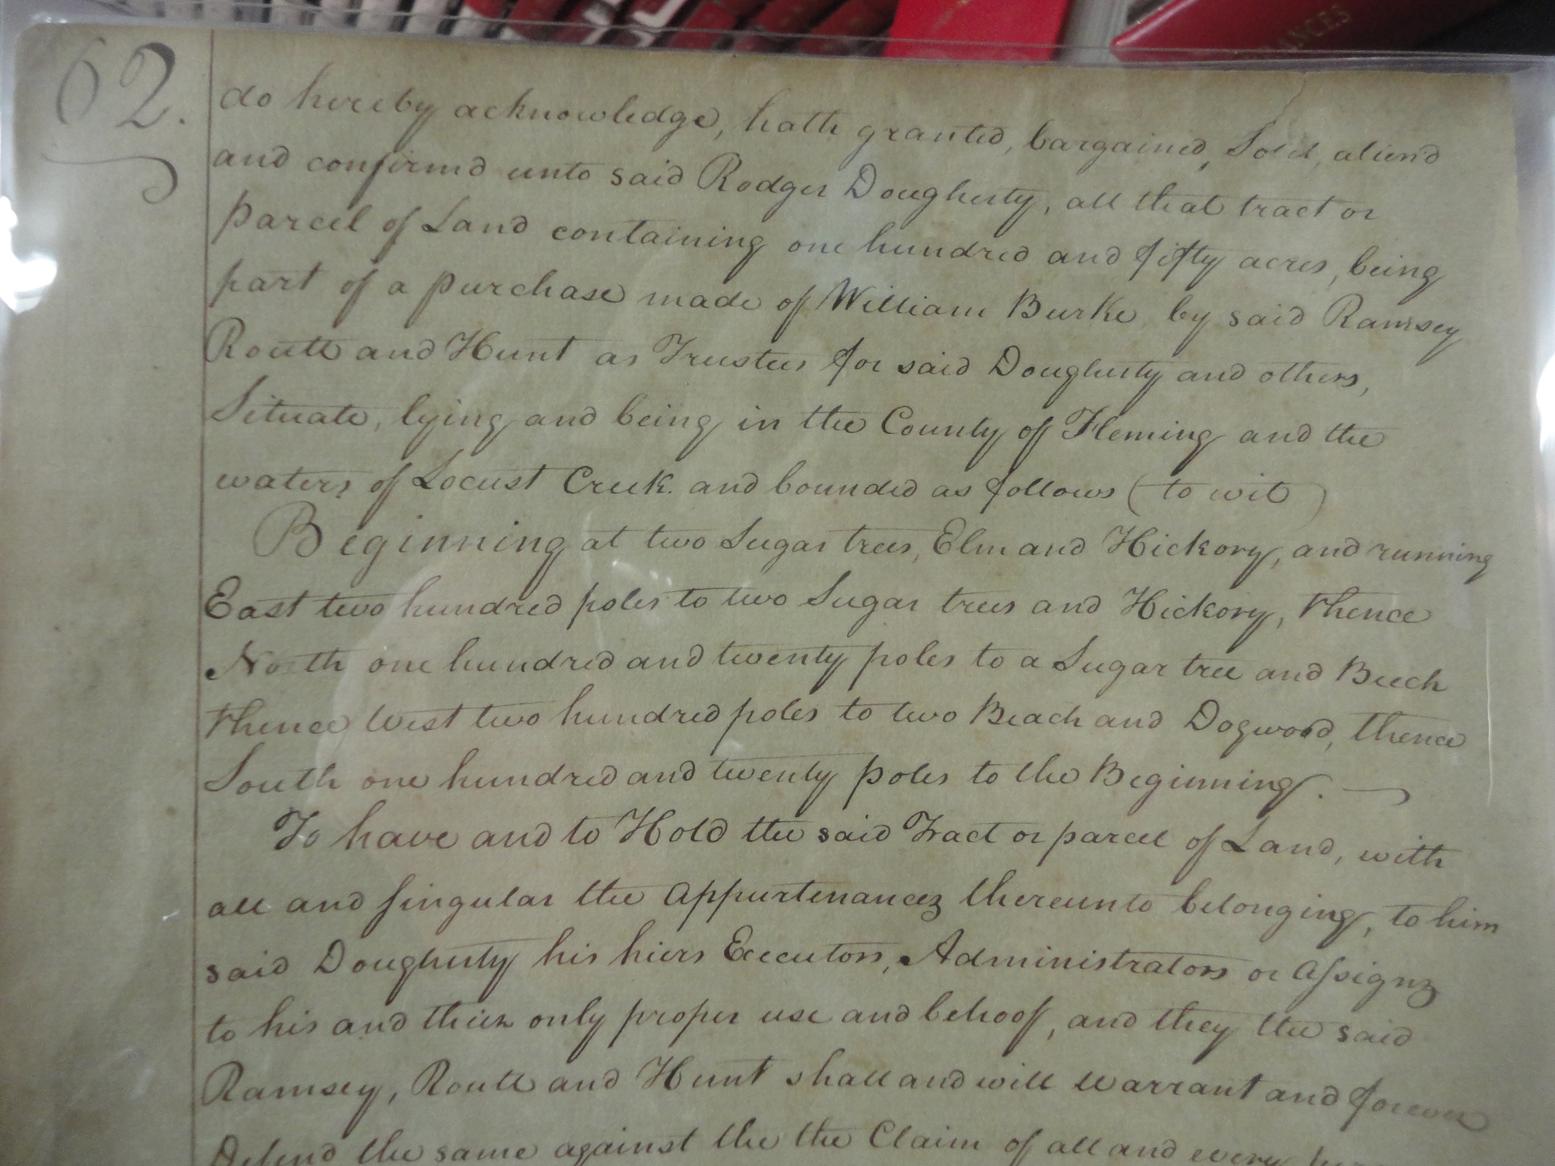 RANCES
62.
do hereby acknowledge, hath granted, bargained, Sold, aliend
and confirmd unto said Rodger Dougherty, all that tract or
parcel of Land containing one hundred and fifty acres, being
part of a purchase made of William Burke by said Ramsey
Routt and Hunt as Trustees for said Dougherty and others,
Situate, lying and being in the County of Fleming and the
waters of Locust Creek. and bounded as follows (to wit)
Beginning at two Sugar trees, Elm and Hickory, and running
East two hundred poles to two Sugar trees and Hickory, thence
North one hundred and twenty poles to a Sugar tree and Beech
thence West two hundred poles to two Beach and Dogwood, thence
South one hundred and twenty poles to the Beginning.
To have and to Hold the said Tract or parcel of Land, with
all and singular the Appurtenances thereunto belonging, to him
said Dougherty his hiers Executors, Administrators or Assigns
to his and their only proper use and behoof, and they the said
Ramsey, Routt and Hunt shall and will warrant and forever
Defend the same against the the Claim of all and every